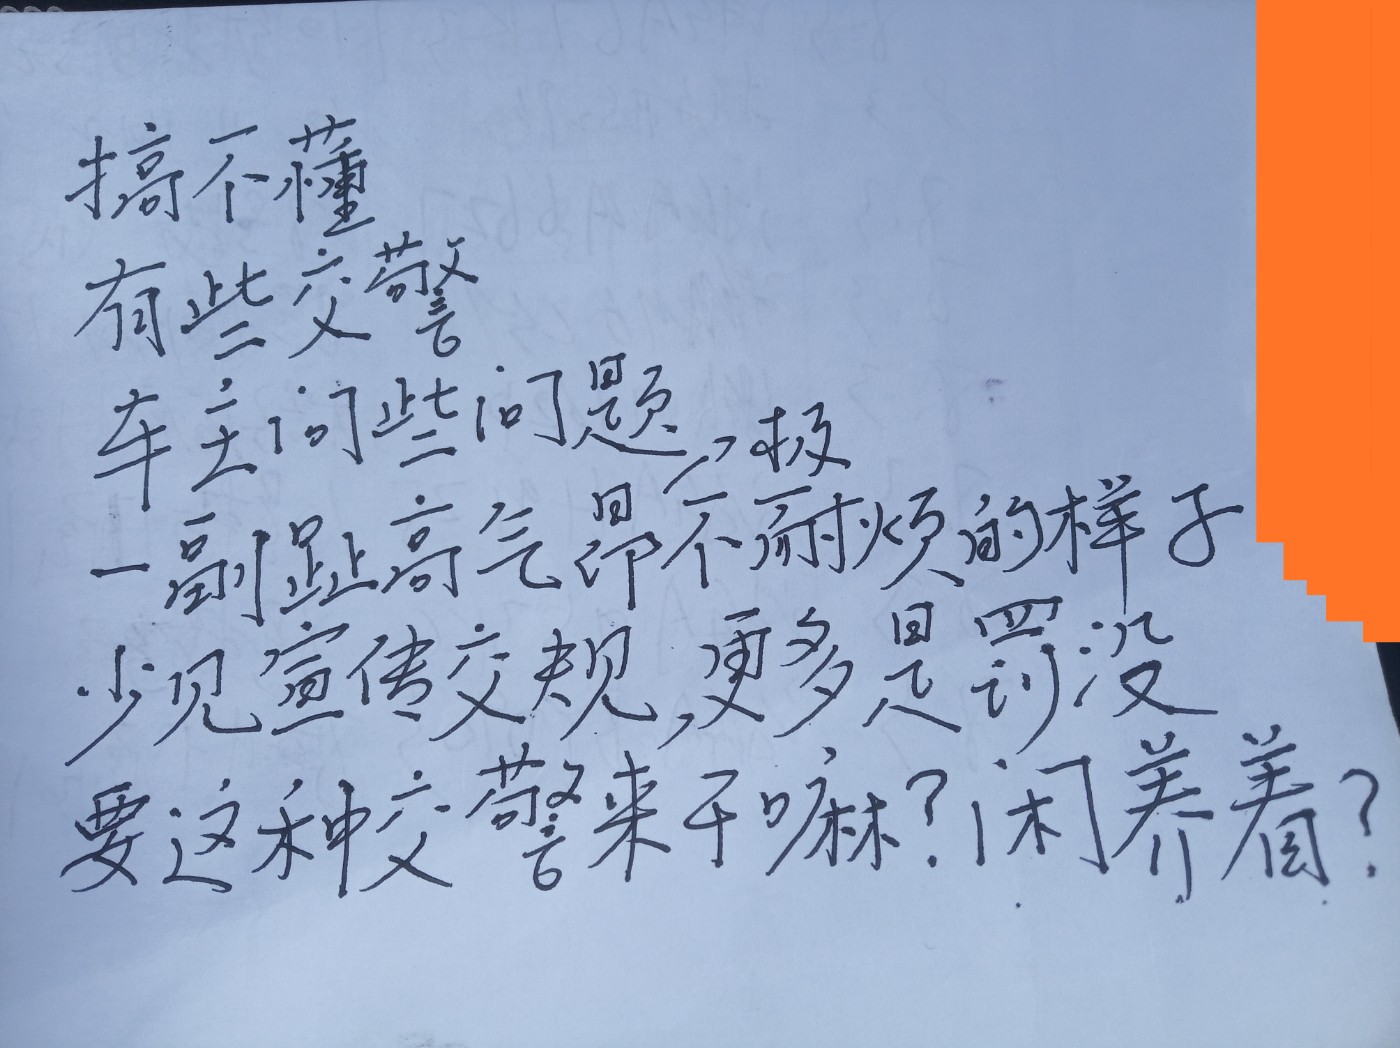 搞不懂
有些交警
车主问些问题
一副趾高气昂极不耐烦的样子
少见宣传交规,更多是罚没
要这种交警来干嘛?闲养着?